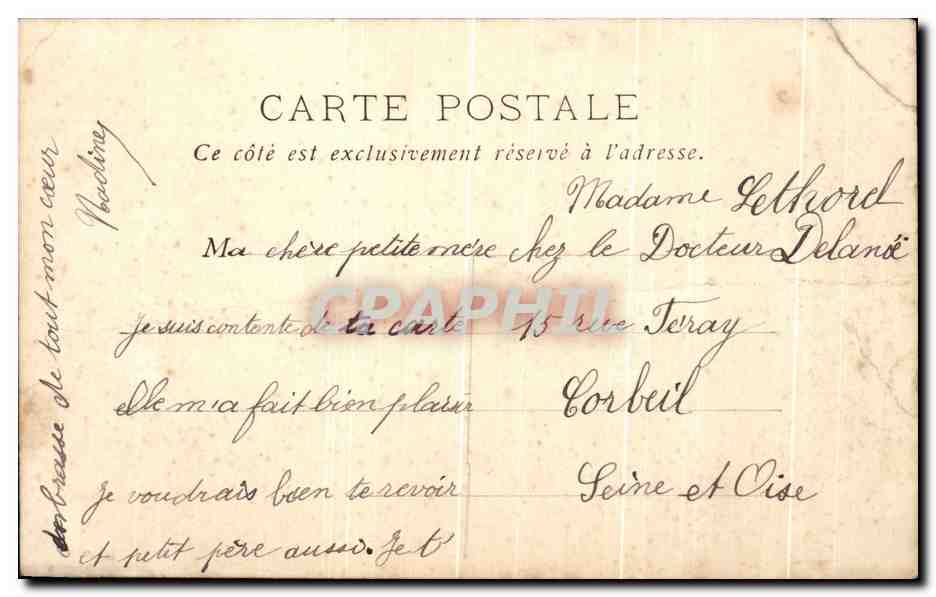 CARTE POSTALE
Ce côté est exclusivement réservé à l'adresse.
Madame Lethorel
chez le Docteur Delanoë
15 rue Feray
Corbeil
Seine et Oise
Ma chère petite mère
Je suis contente de ta carte
elle m'a fait bien plaisir
Je voudrais bien te revoir
et petit père aussi. Je t'
embrasse de tout mon cœur
Nadine
CPAPHIL